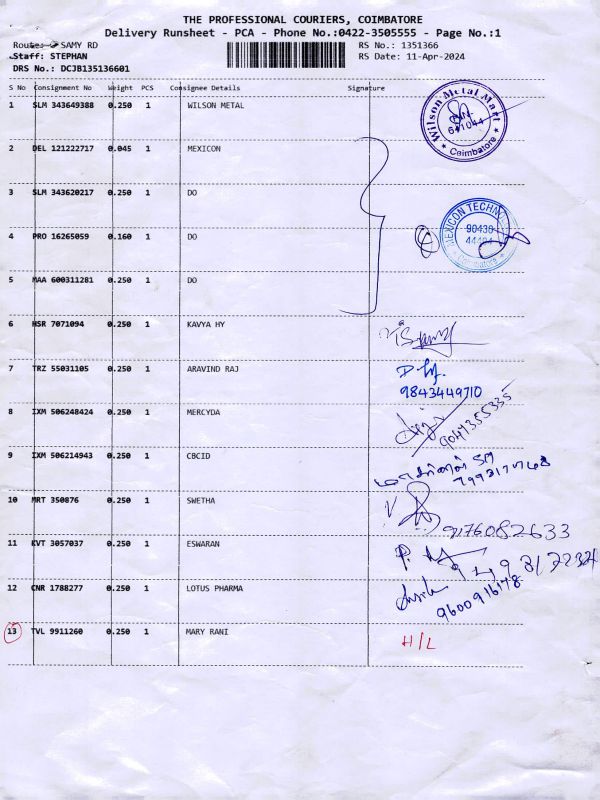 THE PROFESSIONAL COURIERS, COIMBATORE
Delivery Runsheet - PCA - Phone No.:0422-3505555 - Page No.:1
Route: SAMY RD
RS No.: 1351366
Staff: STEPHAN
RS Date: 11-Apr-2024
DRS No.: DCJB135136601
S No Consignment No Weight PCS Consignee Details Signature
1 SLM 343649388 0.250 1 WILSON METAL
Wilson Metal Mart
641044
Coimbatore
2 DEL 121222717 0.045 1 MEXICON
3 SLM 343620217 0.250 1 DO
4 PRO 16265059 0.160 1 DO
MEXICON TECHNO
90430
Coimbatore
5 MAA 600311281 0.250 1 DO
6 HSR 7071094 0.250 1 KAVYA HY
7 TRZ 55031105 0.250 1 ARAVIND RAJ
9843449710
8 IXM 506248424 0.250 1 MERCYDA
9047355335
9 IXM 506214943 0.250 1 CBCID
10 MRT 350876 0.250 1 SWETHA
9176082633
11 KVT 3057037 0.250 1 ESWARAN
12 CNR 1788277 0.250 1 LOTUS PHARMA
9600916178
13 TVL 9911260 0.250 1 MARY RANI
H/L